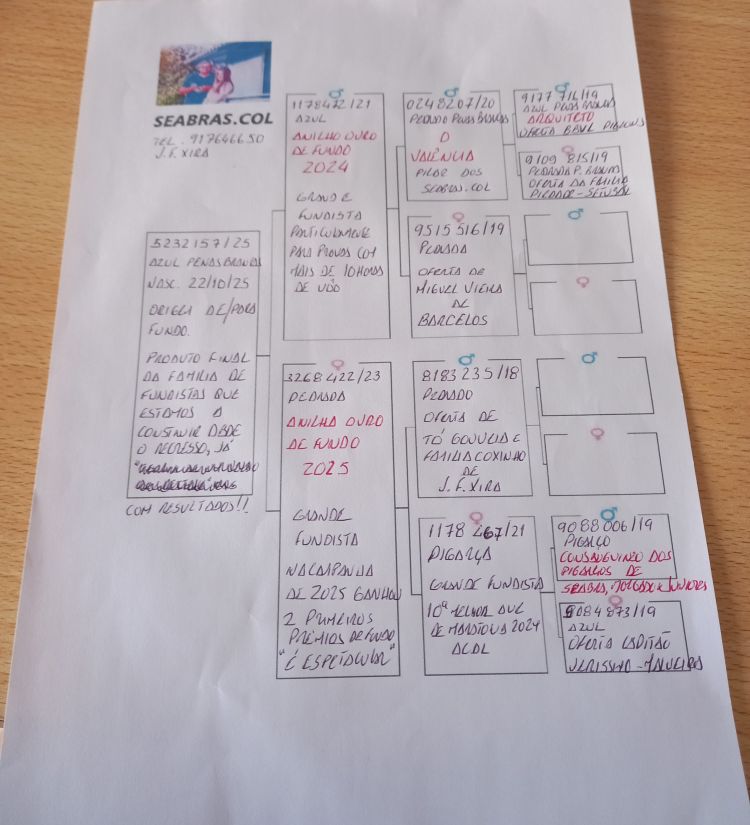 SEABRAS.COL
TEL. 917646650
J.F. XIRA
5232157/25
AZUL PENAS BRANCAS
NASC. 22/10/25
ORIGEM DE/PARA
FUNDO.
PRODUTO FINAL
DA FAMILIA DE
FUNDISTAS QUE
ESTAMOS A
CONSTRUIR DESDE
O REGRESSO, JÁ
COM RESULTADOS!!
1178472/21
AZUL
ANILHA OURO
DE FUNDO
2024
GRANDE
FUNDISTA
PARTICULARMENTE
PARA PROVAS COM
MAIS DE 10 HORAS
DE VOO
3268422/23
PEDRADA
ANILHA OURO
DE FUNDO
2025
GRANDE
FUNDISTA
NA CAMPANHA
DE 2025 GANHOU
2 PRIMEIROS
PRÉMIOS DE FUNDO
"É ESPETACULAR"
0248207/20
PEDRADO PENAS BRANCAS
O
VALÊNCIA
PILAR DOS
SEABRAS.COL
9515516/19
PEDRADA
OFERTA DE
MIGUEL VIEIRA
DE
BARCELOS
8183235/18
PEDRADO
OFERTA DE
TÓ GOUVEIA E
FAMILIA COXINHO
DE
J.F. XIRA
1178467/21
PIGARÇA
GRANDE FUNDISTA
10ª MELHOR AVE
DE MARATONA 2024
ACDL
9177716/19
AZUL PENAS BRANCAS
ARQUITETO
OFERTA BAUL PIGEONS
9109815/19
PEDRADA P. BRANCAS
OFERTA DA FAMILIA
PIEDADE-SETUBAL
9088006/19
PIGARÇO
CONSANGUINEO DOS
PIGARÇOS DE
SEABRA, MORGADO E JUNIORES
9084873/19
AZUL
OFERTA CAPITÃO
VERISSIMO-